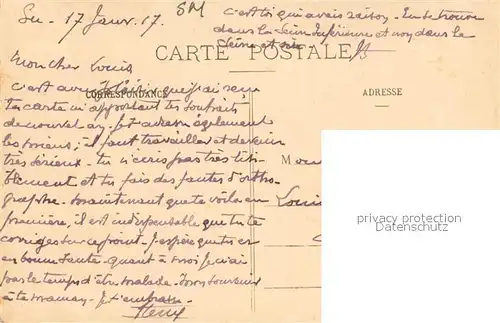 Su - 17 Janv. 17. SM
c'est toi qui avais raison - tu te trouve
dans la Seine Inférieure et non dans la
Seine et
CARTE POSTALE
CORRESPONDANCE
ADRESSE
Mon cher Louis
c'est avec plaisir que j'ai reçu
ta carte m'apportant tes souhaits
de nouvel an. Je t'adresse également
les miens; il faut travailler et devenir
très sérieux - tu n'écris pas très lisi-
blement et tu fais des fautes d'ortho-
graphe. Maintenant que te voilà en
première, il est indispensable que tu te
corriges sur ce point. J'espère que tu es
en bonne santé. quant à moi je n'ai
pas le temps d'être malade. Mon souvenir
à ta maman - Je t'embrasse
Louis
privacy protection
oldthing.de